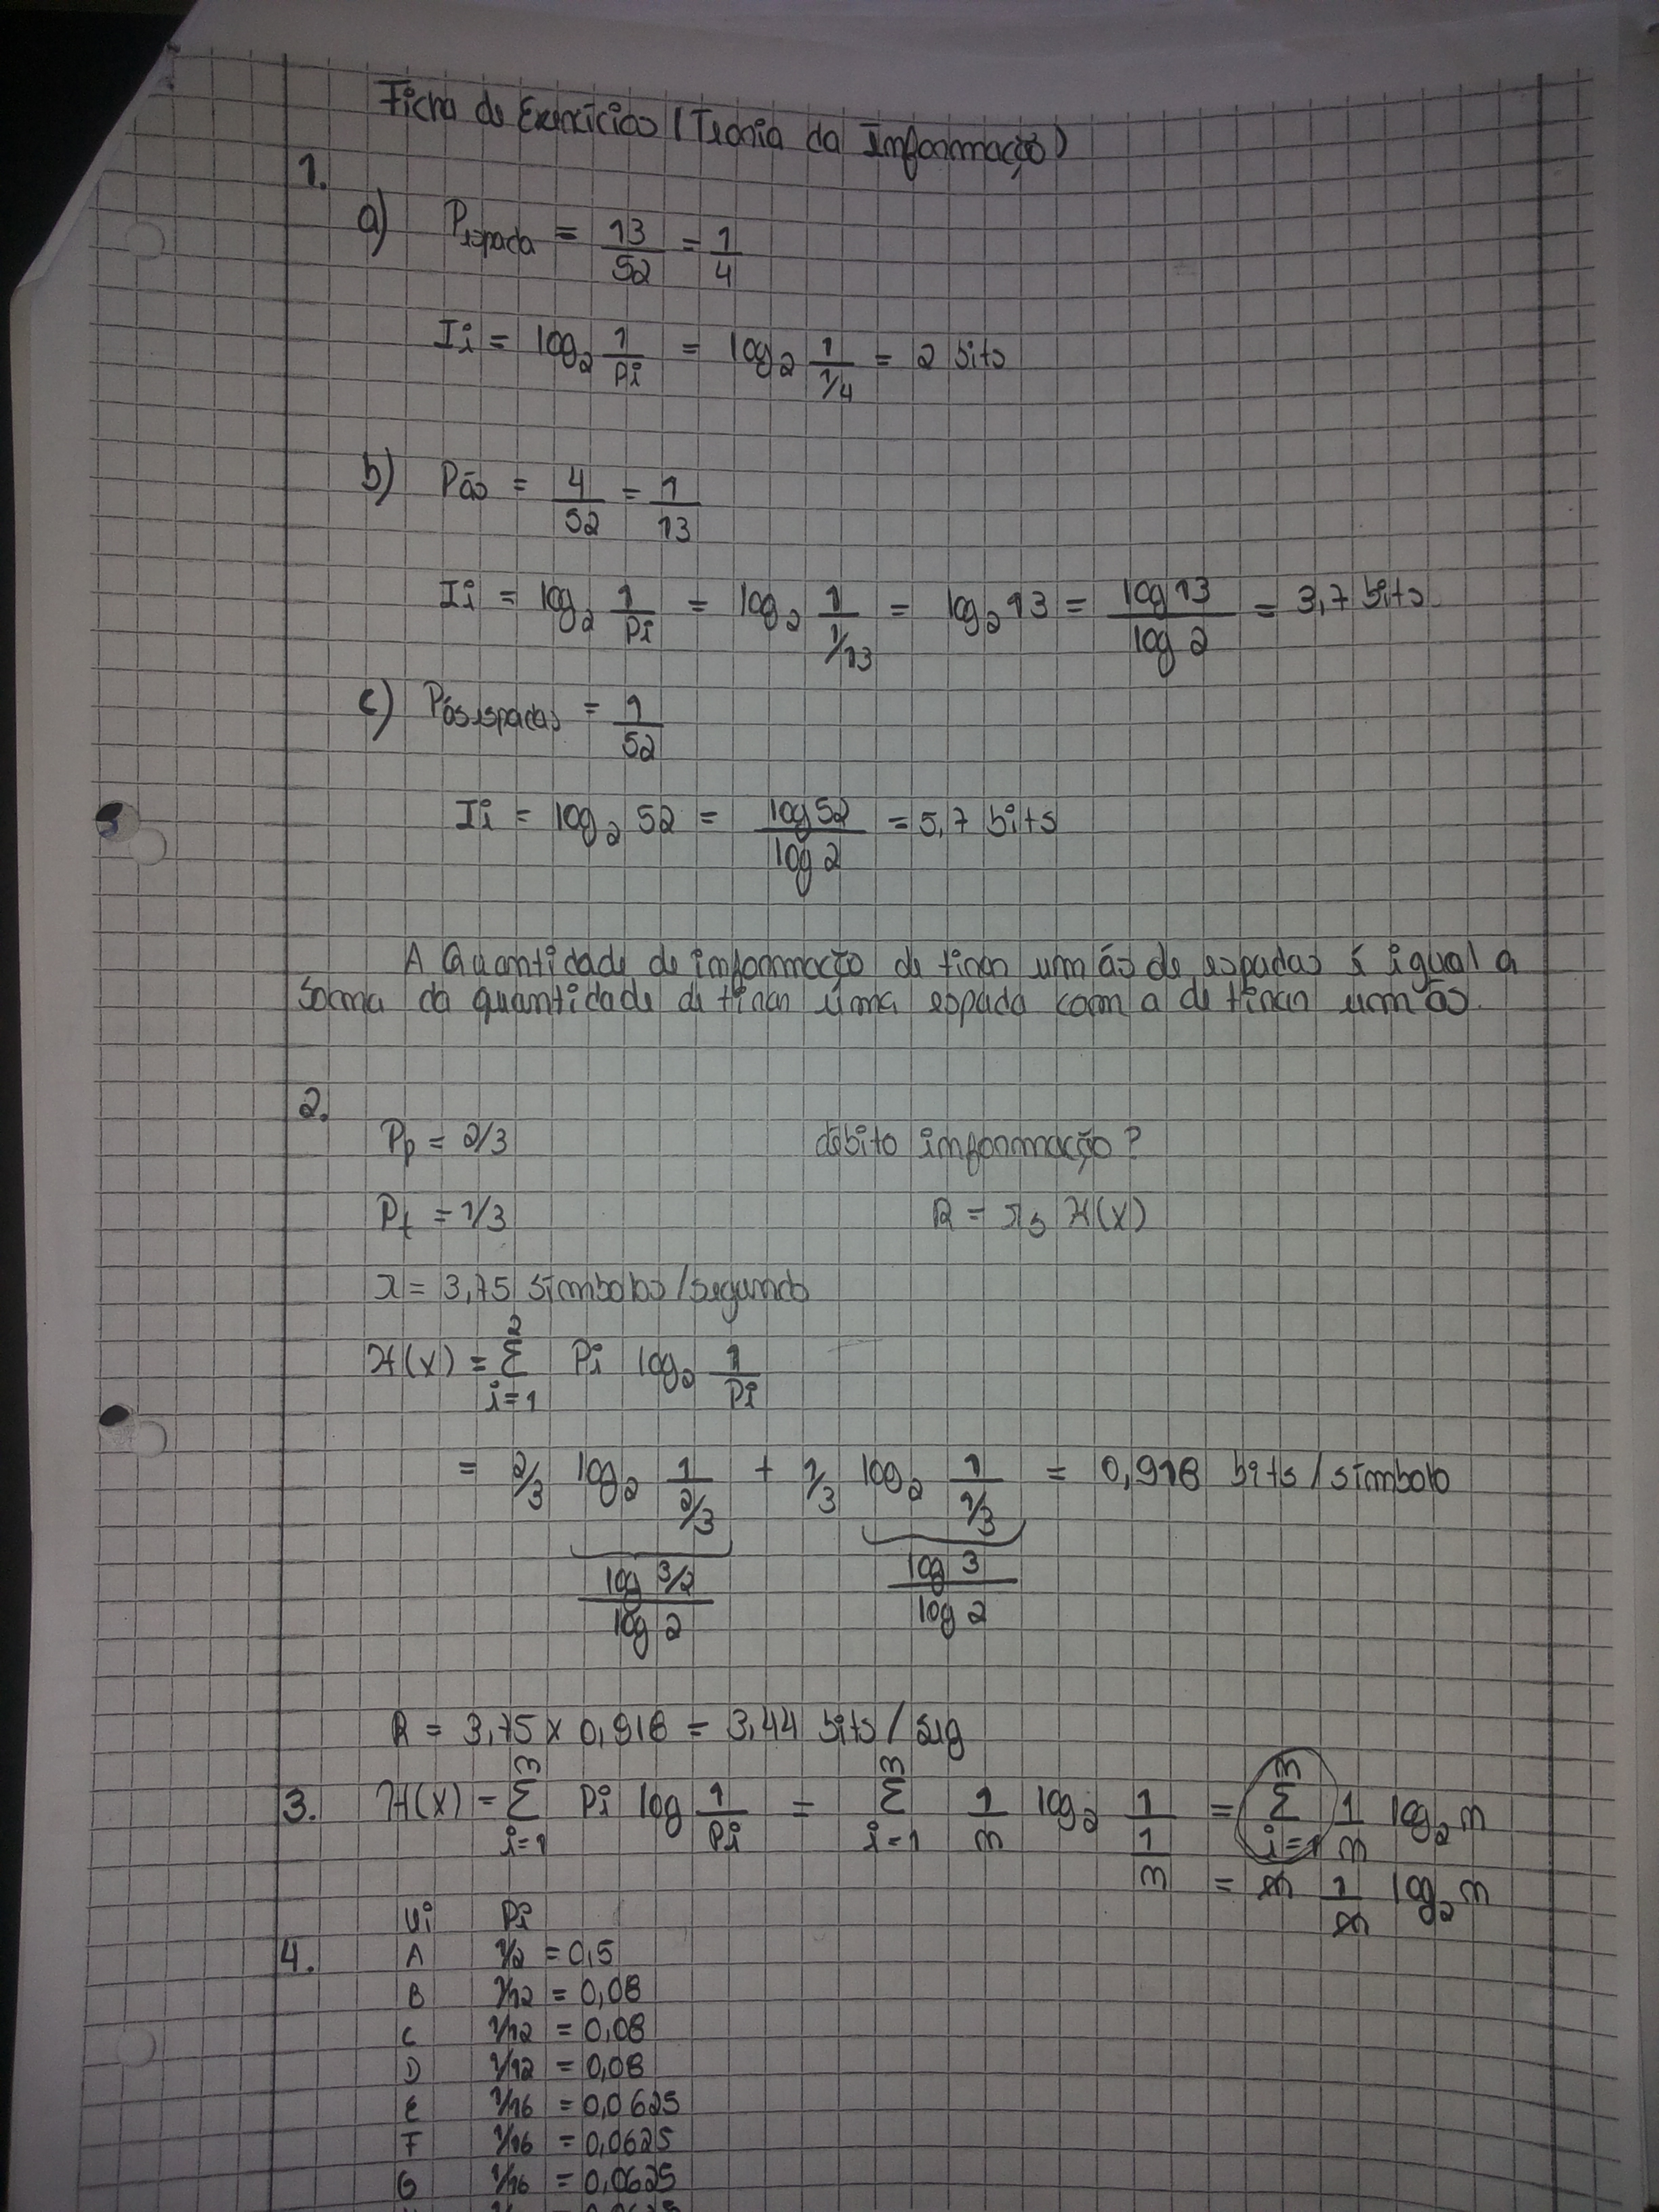 Ficha de Exercícios (Teoria da Informação)
1.
a) Pespada = 13/52 = 1/4
Ii = log₂ 1/Pi = log₂ 1/1/4 = 2 bits
b) Pás = 4/52 = 1/13
Ii = log₂ 1/Pi = log₂ 1/1/13 = log₂ 13 = log 13/log 2 = 3,7 bits
c) Pás espadas = 1/52
Ii = log₂ 52 = log 52/log 2 = 5,7 bits
A Quantidade de informação de tirar um ás de espadas é igual a
soma da quantidade de tirar uma espada com a de tirar um ás.
2.
Pp = 2/3 débito informação?
Pt = 1/3 R = rs H(X)
r = 3,75 simbolos/segundo
H(X) = Σ i=1 2 Pi log₂ 1/Pi
= 2/3 log₂ 1/2/3 + 1/3 log₂ 1/1/3 = 0,918 bits/simbolo
log 3/2 / log 2 log 3 / log 2
R = 3,75 x 0,918 = 3,44 bits/seg
3. H(X) = Σ i=1 m Pi log 1/Pi = Σ i=1 m 1/m log₂ 1/1/m = Σ i=1 m 1/m log₂ m
= m 1/m log₂ m
Ui Pi
4. A 1/2 = 0,5
B 1/12 = 0,08
C 1/12 = 0,08
D 1/12 = 0,08
E 1/16 = 0,0625
F 1/16 = 0,0625
G 1/16 = 0,0625